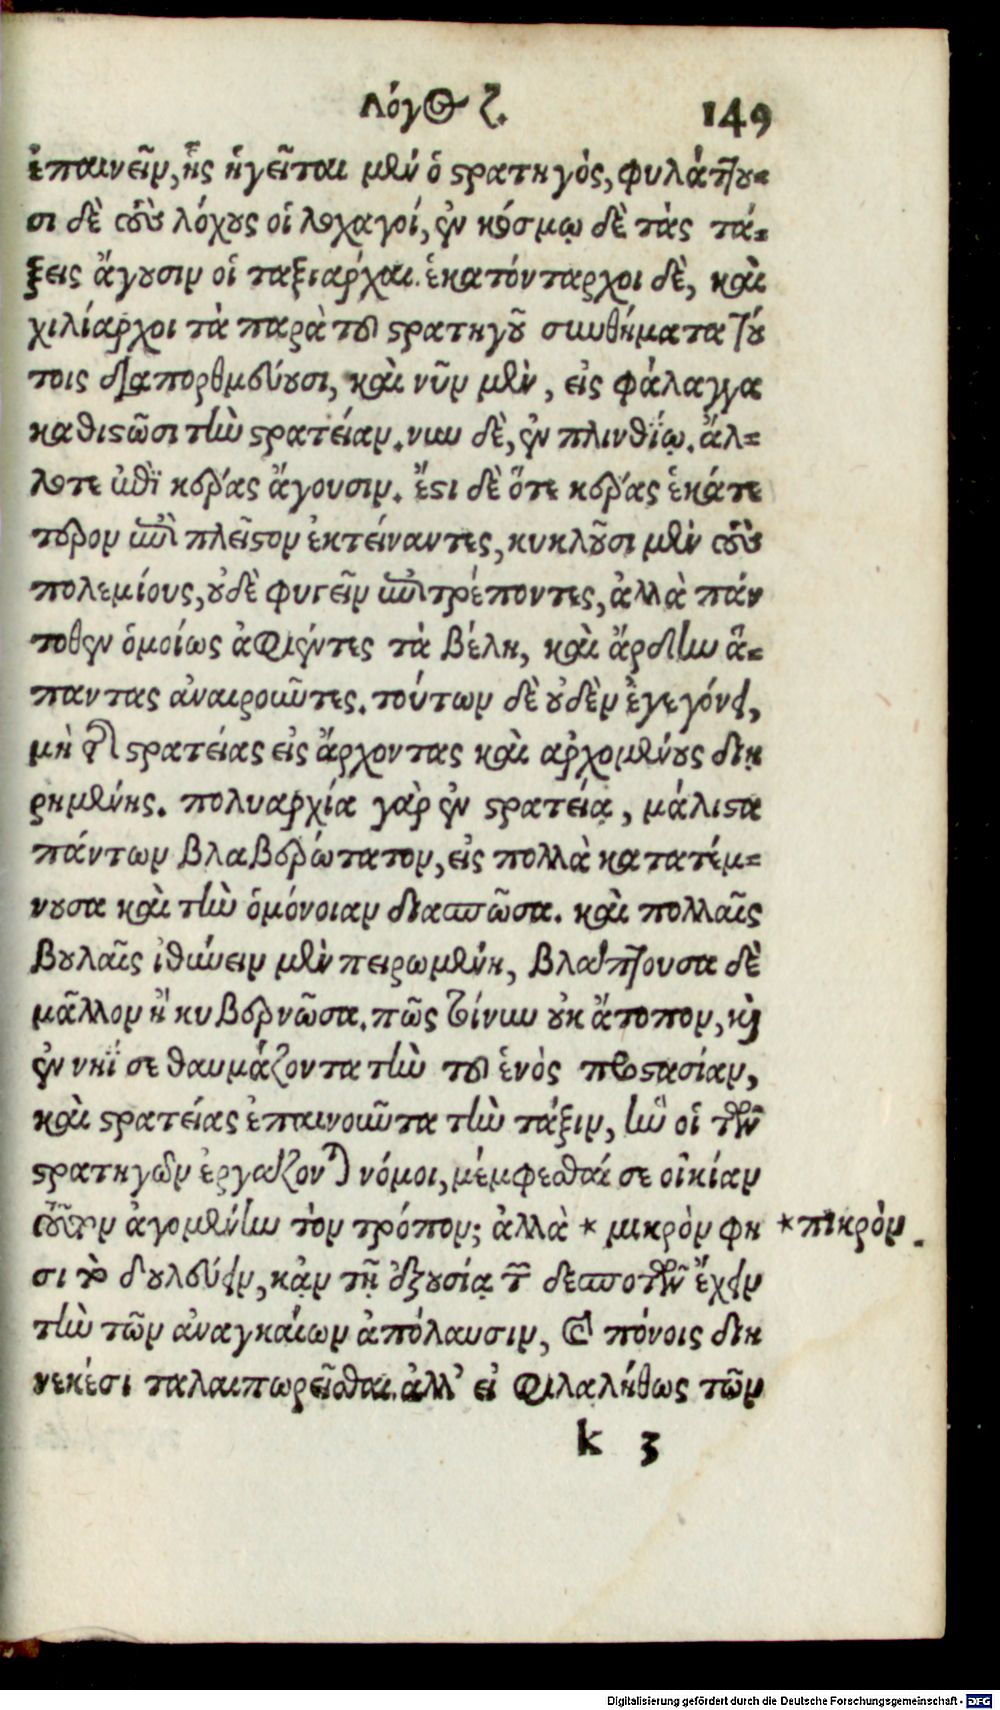 Λόγος ζ. 149
ἐπαινεῖν, ἧς ἡγεῖται μὲν ὁ στρατηγός, φυλάττου-
σι δὲ τοὺς λόχους οἱ λοχαγοί, ἐν κόσμῳ δὲ τὰς τά-
ξεις ἄγουσιν οἱ ταξιαρχαι. ἑκατόνταρχοι δὲ, καὶ
χιλίαρχοι τὰ παρὰ τοῦ στρατηγοῦ συνθήματα τού
τοις διαπορθμεύουσι, καὶ νῦν μὲν, εἰς φάλαγγα
καθιστῶσι τὴν στρατείαν. νυν δὲ, ἐν πλινθίῳ. ἄλ-
λοτε ἐπὶ κέρας ἄγουσιν. ἔστι δὲ ὅτε κέρας ἑκάτε
τερον ἐπὶ πλεῖστον ἐκτείναντες, κυκλοῦσι μὲν τοὺς
πολεμίους, οὐδὲ φυγεῖν ἐπιτρέποντες, ἀλλὰ πάν
τοθεν ὁμοίως ἀφιέντες τὰ βέλη, καὶ ἄρδην ἅ-
παντας ἀναιροῦντες. τούτων δὲ οὐδὲν ἐγεγόνει,
μὴ τῆς στρατείας εἰς ἄρχοντας καὶ αρχομένους διῃ
ρημένης. πολυαρχία γὰρ ἐν στρατείᾳ, μάλιστα
πάντων βλαβερώτατον, εἰς πολλὰ κατατέμ-
νουσα καὶ τὴν ὁμόνοιαν διασπῶσα. καὶ πολλαῖς
βουλαῖς ἰθύνειν μὲν πειρωμένη, βλάπτουσα δὲ
μᾶλλον ἢ κυβερνῶσα. πῶς τοίνυν οὐκ ἄτοπον, καὶ
ἐν νηῒ σε θαυμάζοντα τὴν τοῦ ἑνὸς προστασίαν,
καὶ στρατείας ἐπαινοῦντα τὴν τάξιν, ἣν οἱ τῶν
στρατηγῶν ἐργάζονται νόμοι, μέμφεσθαί σε οἰκίαν
τοῦτον ἀγομένην τὸν τρόπον; ἀλλὰ * μικρὸν φη * πικρὸν.
σι τὸ δουλεύειν, κᾂν τῇ ἐξουσίᾳ τῶν δεσποτῶν ἔχειν
τὴν τῶν ἀναγκαίων ἀπόλαυσιν, καὶ πόνοις διη
νεκέσι ταλαιπωρεῖσθαι. ἀλλ' εἰ φιλαλήθως τῶν
k 3
Digitalisierung gefördert durch die Deutsche Forschungsgemeinschaft - DFG